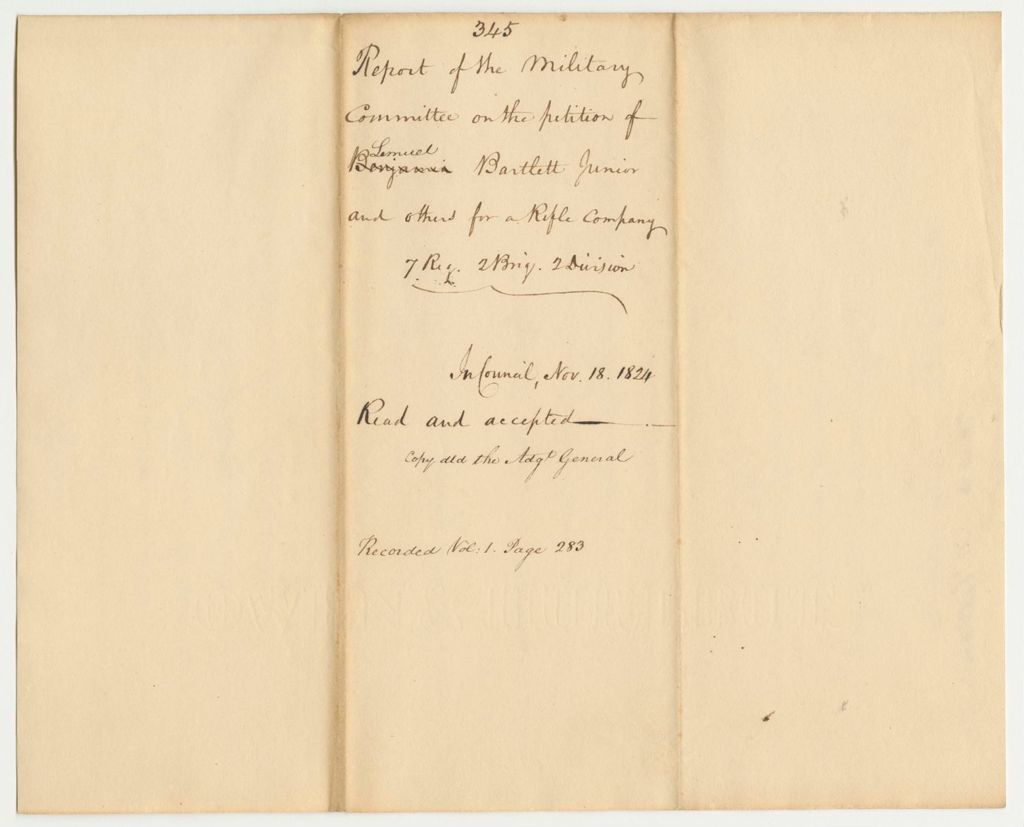 345
Report of the Military
Committee on the petition of
Lemuel
Benjamin Bartlett Junior
and others for a Rifle Company
7 Reg. 2 Brig. 2 Division
In Council, Nov. 18. 1824
Read and accepted
Copy dld the Adgt General
Recorded Vol: 1. Page 283